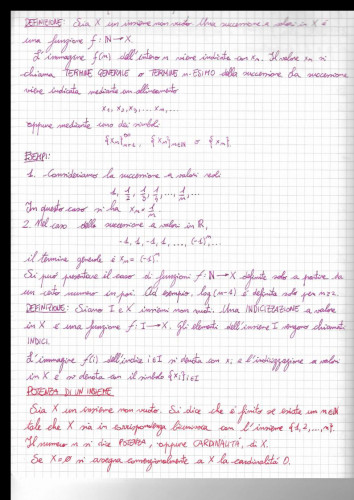 DEFINIZIONE: Sia X un insieme non vuoto. Una successione a valori in X è
una funzione f: ℕ → X.
L'immagine f(n) dell'intero n viene indicata con xₙ. Il valore xₙ si
chiama TERMINE GENERALE o TERMINE n-ESIMO della successione. La successione
viene indicata mediante un allineamento
x₁, x₂, x₃, ... xₙ, ...
oppure mediante uno dei simboli
{xₙ}ₙ₌₁^∞ {xₙ}ₙ∈ℕ o {xₙ}.
ESEMPI:
1. Consideriamo la successione a valori reali
1, 1/2, 1/3, 1/4, ..., 1/n, ...
In questo caso si ha xₙ = 1/n
2. Nel caso della successione a valori in ℝ,
-1, 1, -1, 1, ..., (-1)ⁿ...
il termine generale è xₙ = (-1)ⁿ
Si può presentare il caso di funzioni f: ℕ → X definite solo a partire da
un certo numero in poi. Ad esempio, log(n-1) è definita solo per n≥2.
DEFINIZIONE: Siano I e X insiemi non vuoti. Una INDICIZZAZIONE a valori
in X è una funzione f: I → X. Gli elementi dell'insieme I vengono chiamati
INDICI.
L'immagine f(i) dell'indice i∈I si denota con xᵢ e l'indicizzazione a valori
in X è si denota con il simbolo {xᵢ}ᵢ∈I
POTENZA DI UN INSIEME
Sia X un insieme non vuoto. Si dice che è finito se esiste un n∈ℕ
tale che X sia in corrispondenza biunivoca con l'insieme {1,2,...,n}.
Il numero n si dice POTENZA, oppure CARDINALITÀ, di X.
Se X=∅ si assegna convenzionalmente a X la cardinalità 0.